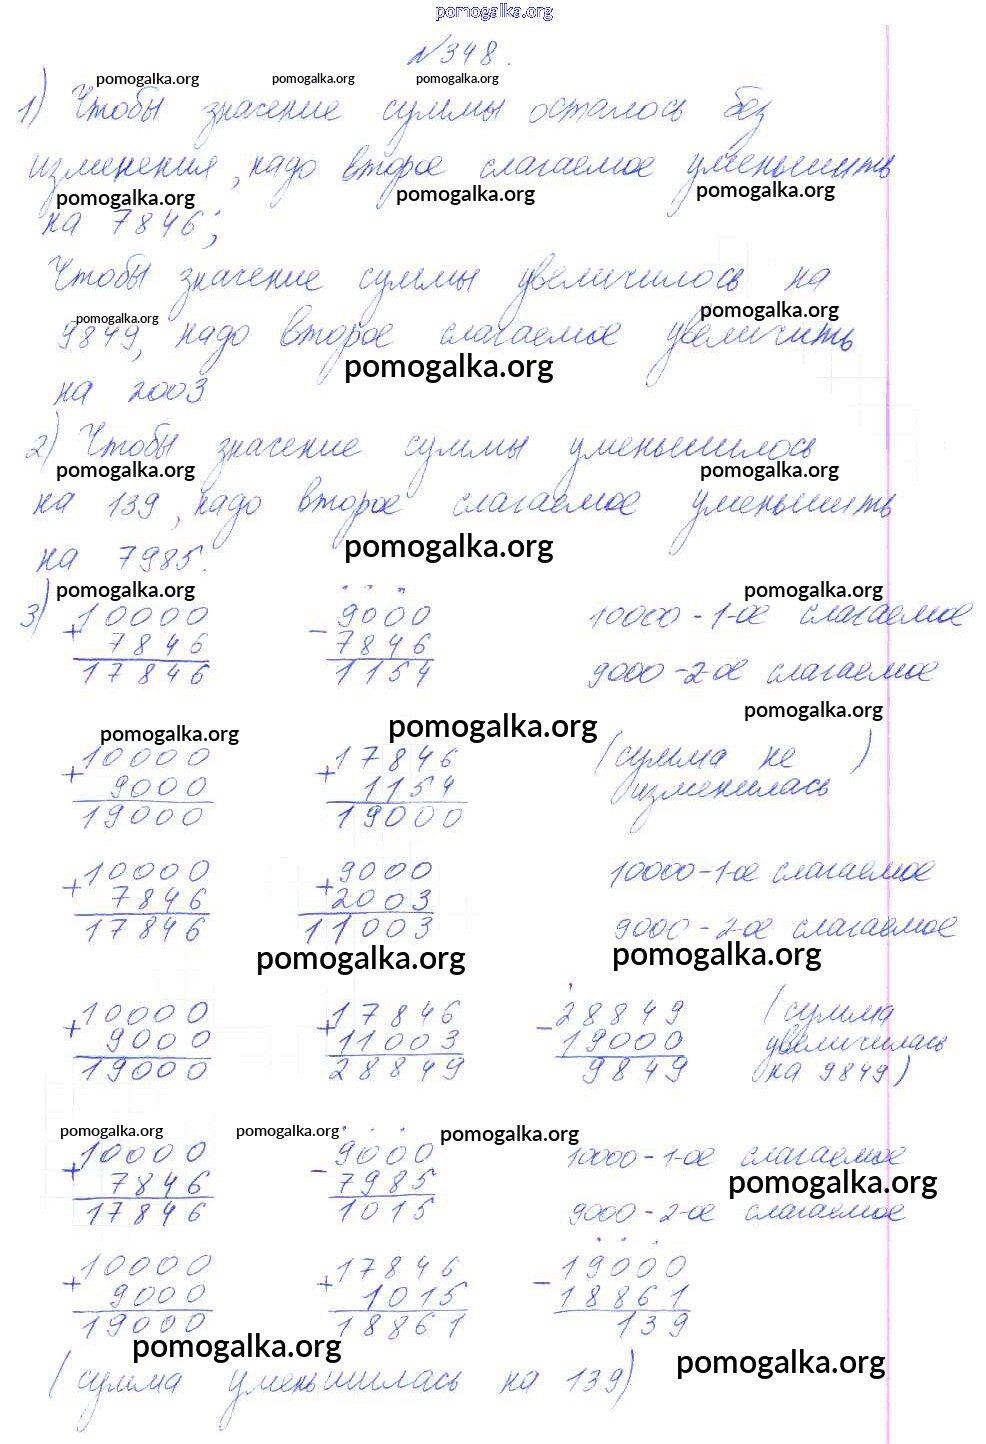 pomogalka.org
№348.
pomogalka.org pomogalka.org pomogalka.org
1) Чтобы значение суммы осталось без
изменения, надо второе слагаемое уменьшить
pomogalka.org pomogalka.org pomogalka.org
на 7846;
Чтобы значение суммы увеличилось на
pomogalka.org pomogalka.org
9849, надо второе слагаемое увеличить
pomogalka.org
на 2003
2) Чтобы значение суммы уменьшилось
pomogalka.org pomogalka.org
на 139, надо второе слагаемое уменьшить
pomogalka.org
на 7985.
pomogalka.org pomogalka.org
3) 10000 9000 10000 - 1-ое слагаемое
+ 7846 - 7846
17846 1154 9000 - 2-ое слагаемое
pomogalka.org pomogalka.org pomogalka.org
10000 17846 (сумма не
+ 9000 + 1154 изменилась)
19000 19000
10000 9000 10000 - 1-ое слагаемое
+ 7846 + 2003
17846 11003 9000 - 2-ое слагаемое
pomogalka.org pomogalka.org
10000 17846 28849 (сумма
+ 9000 + 11003 - 19000 увеличилась
19000 28849 9849 на 9849)
pomogalka.org pomogalka.org pomogalka.org
10000 9000 10000 - 1-ое слагаемое
+ 7846 - 7985
pomogalka.org
17846 1015 9000 - 2-ое слагаемое
10000 17846 19000
+ 9000 + 1015 - 18861
19000 18861 139
pomogalka.org pomogalka.org
(сумма уменьшилась на 139)